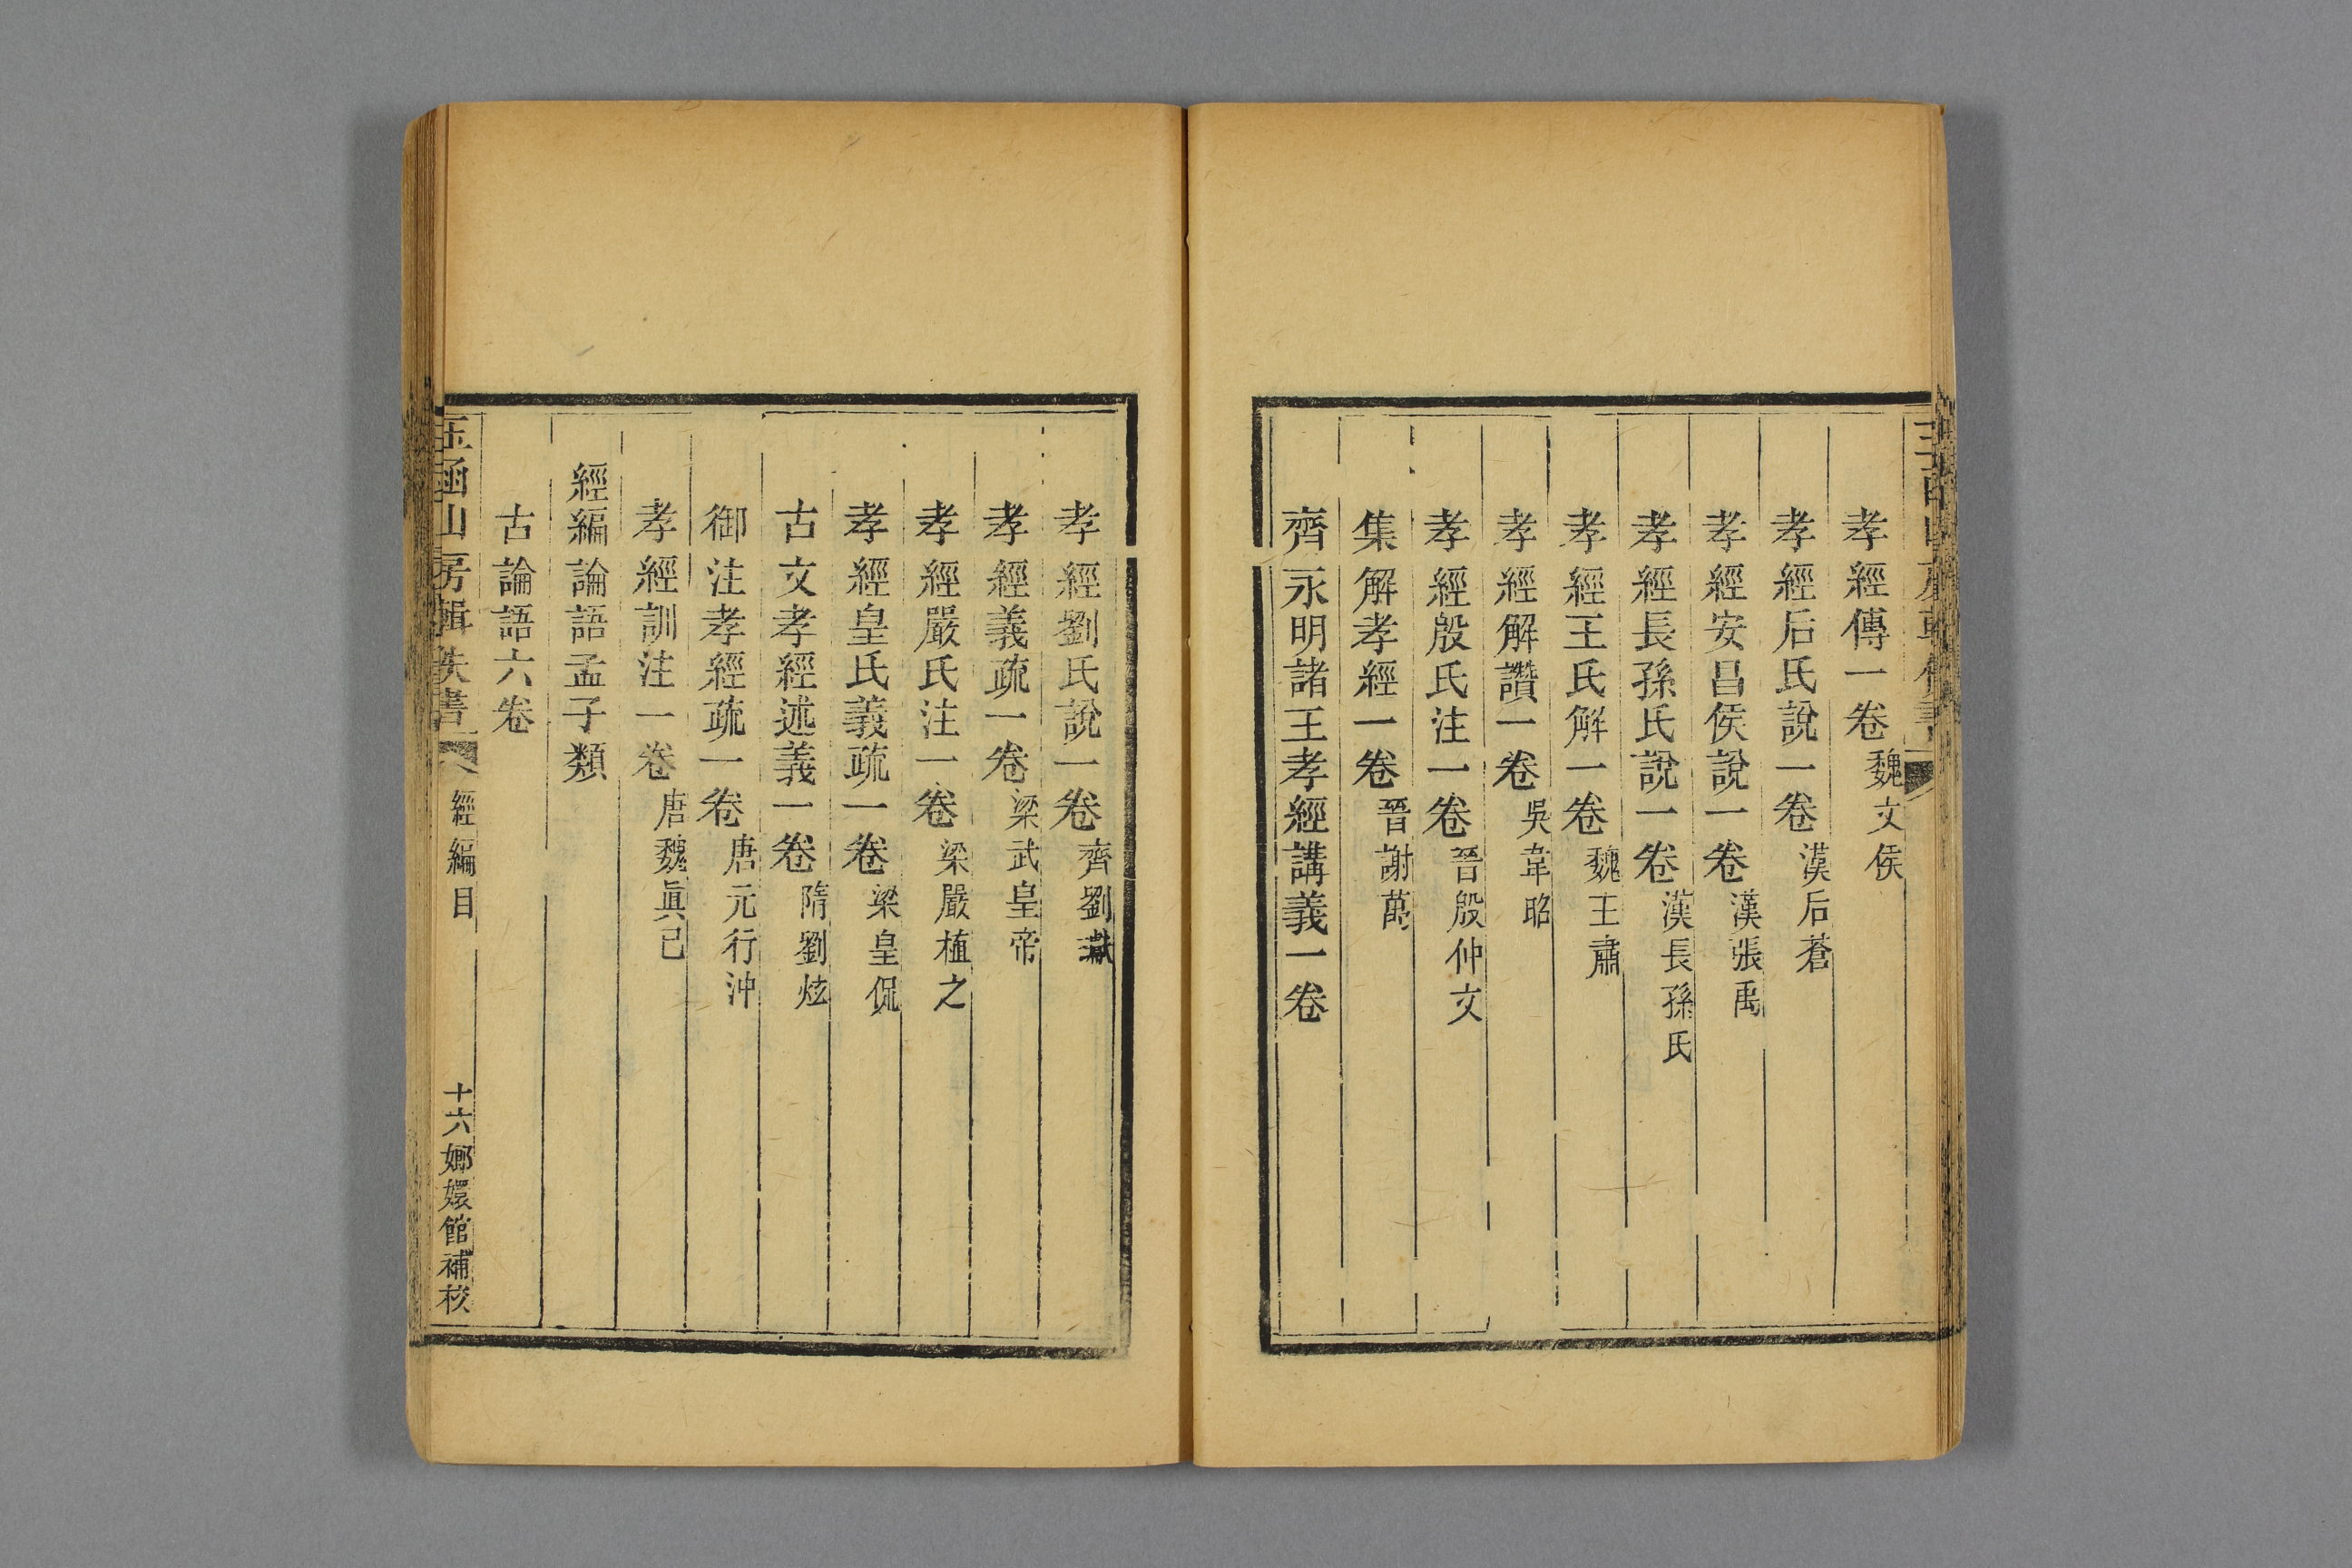 孝經傳一卷魏文侯
孝經后氏說一卷漢后蒼
孝經安昌侯說一卷漢張禹
孝經長孫氏說一卷漢長孫氏
孝經王氏解一卷魏王肅
孝經解讚一卷吳韋昭
孝經殷氏注一卷晉殷仲文
集解孝經一卷晉謝萬
齊永明諸王孝經講義一卷
孝經劉氏說一卷齊劉瓛
孝經義疏一卷梁武皇帝
孝經嚴氏注一卷梁嚴植之
孝經皇氏義疏一卷梁皇侃
古文孝經述義一卷隋劉炫
御注孝經疏一卷唐元行沖
孝經訓注一卷唐魏眞己
經編論語孟子類
古論語六卷
玉函山房輯佚書 經編目 十六 嫏嬛館補校